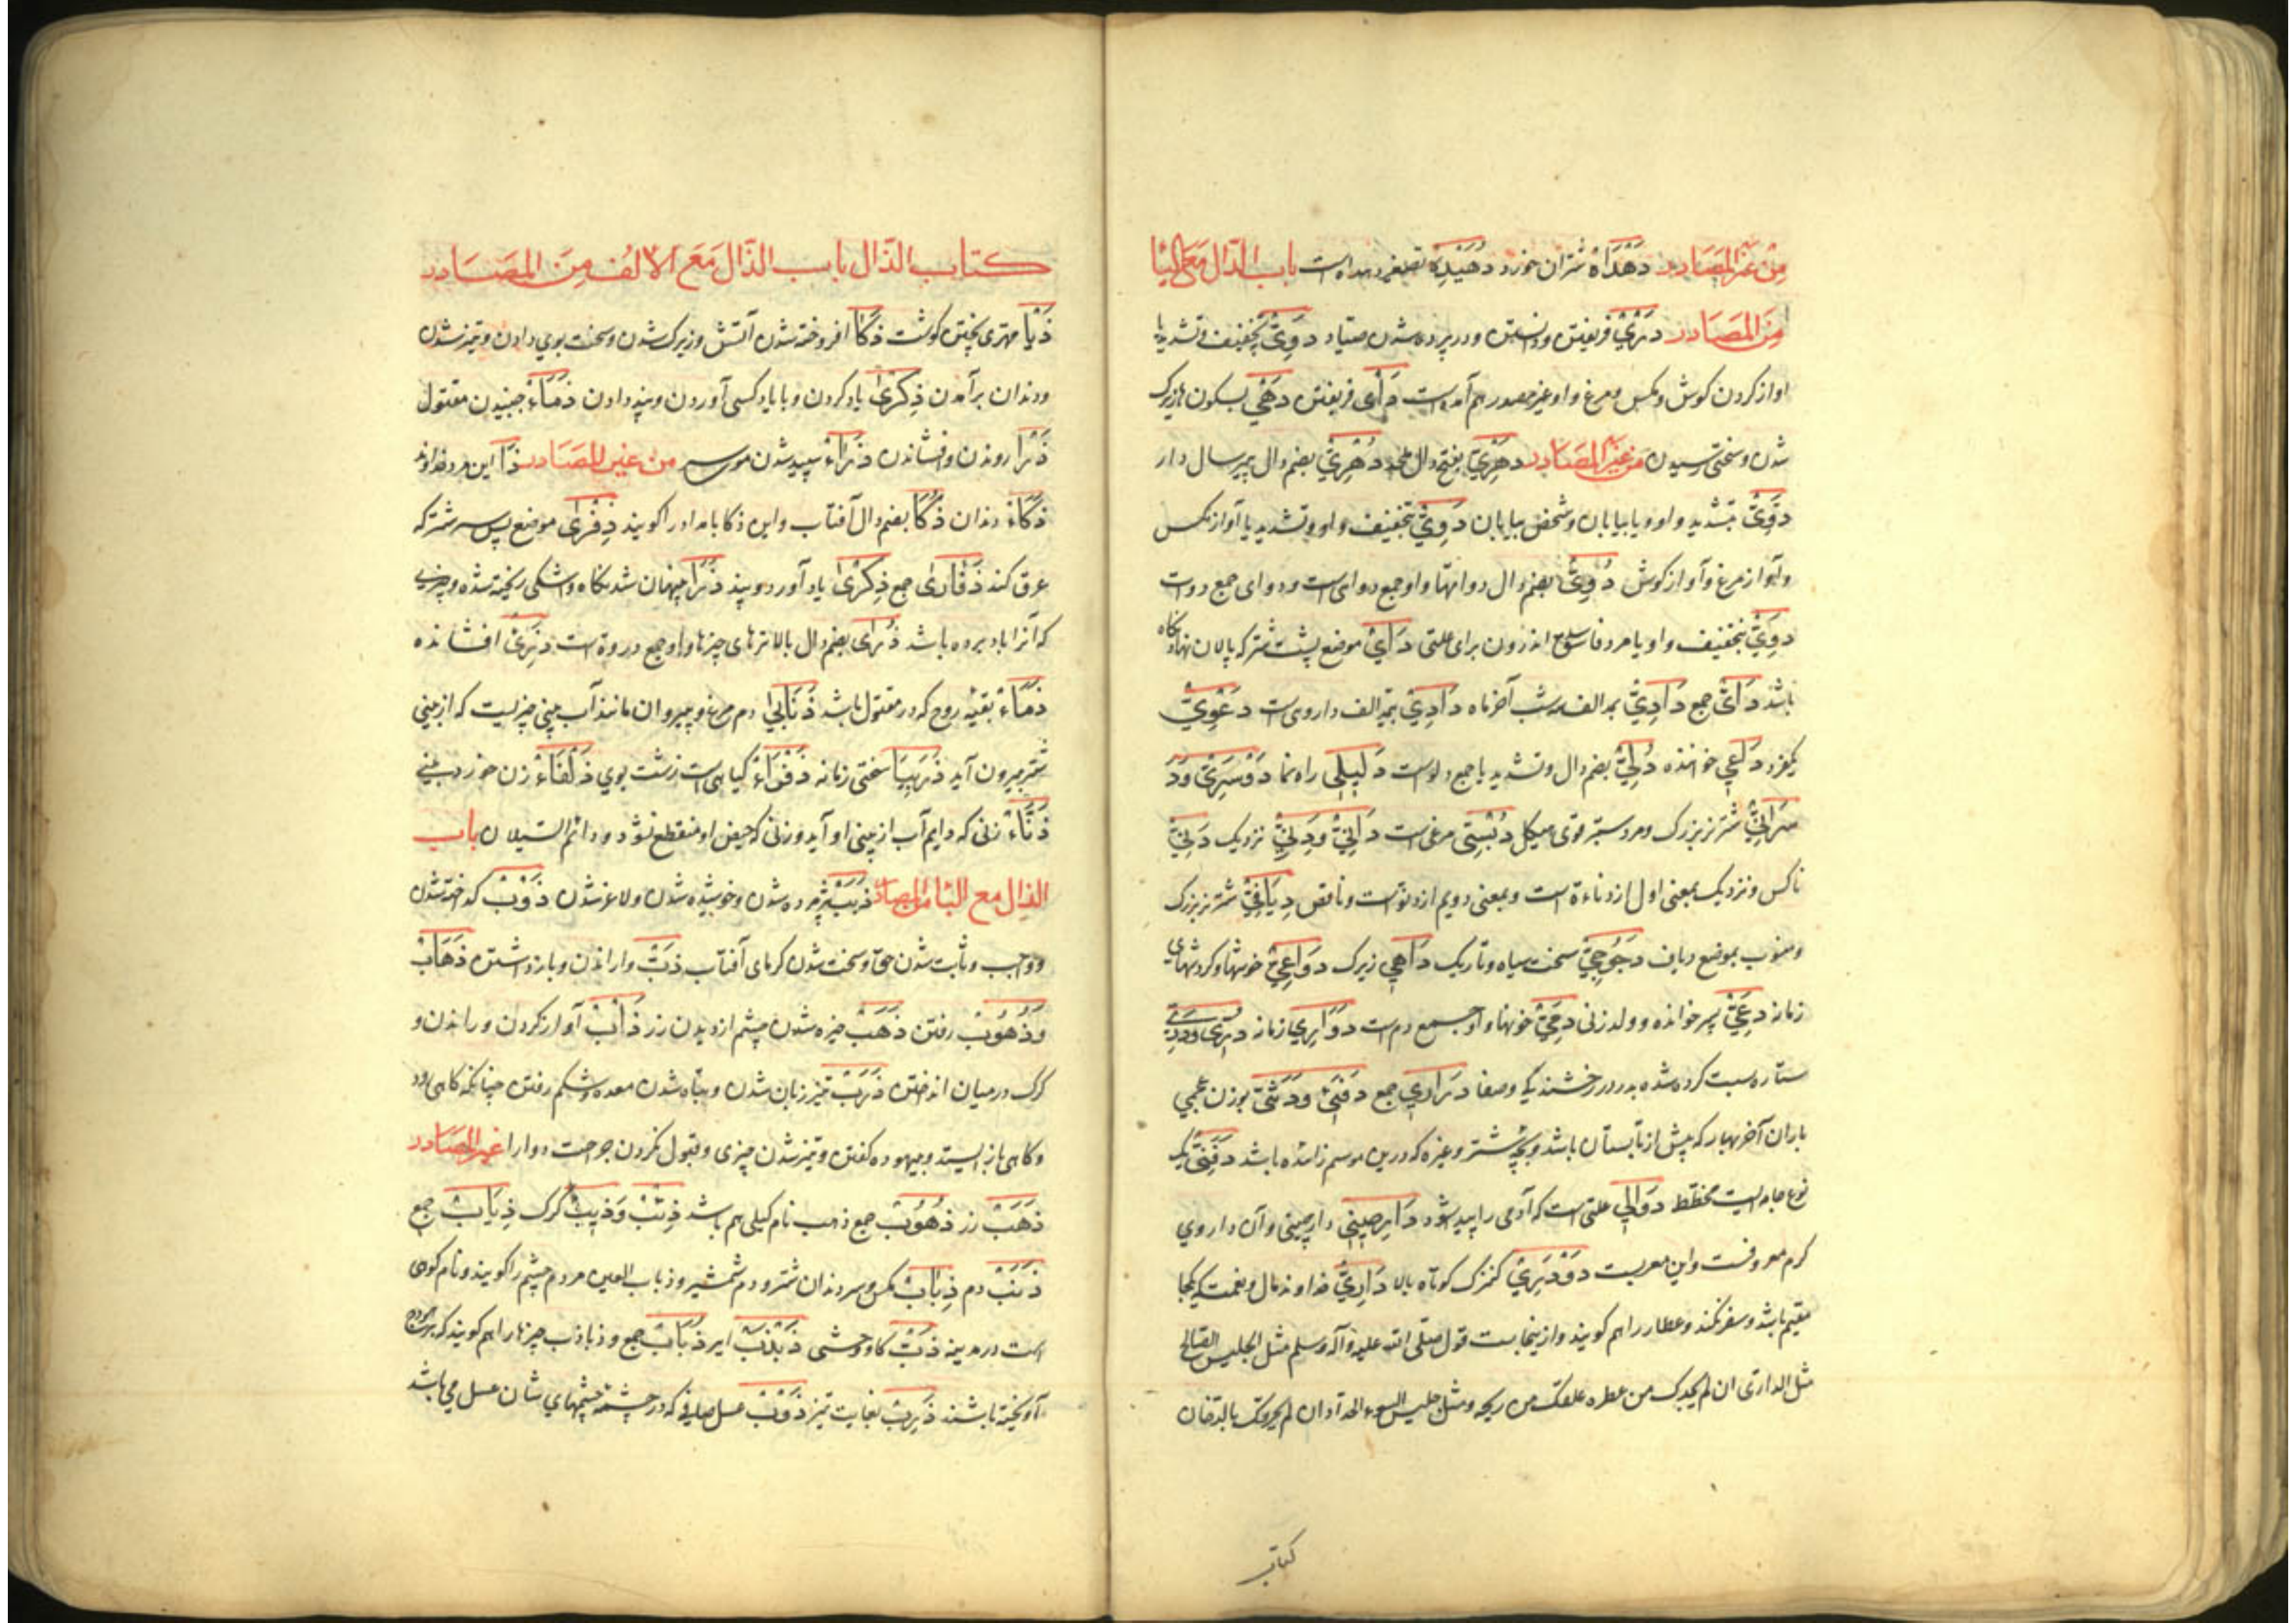 من غیر المصادر دَهْدَاهٌ شتران خورد دُهَیْدِهٌ تصغیر دهداه است باب الدال مع الیا
مِنَ المصَادر دَرْیٌ فریفتن و دانستن و در پرده شدن صیاد دَوِیٌّ بتخفیف و تشدید یا
اواز کردن کوش و مکس و مرغ و او غیر مصدر هم آمده است دَأْیٌ فریفتن دَهْیٌ بسکون ها زیرک
شدن و سختی رسیدن من غیر المصادر دَهْرِیٌّ بفتح دال ملحد دُهْرِیٌّ بضم دال پیر سال دار
دَوِّیٌّ بتشدید واو و یا بیابان و شخص بیابان دَوِیٌّ بتخفیف واو و تشدید یا آواز مکس
و آواز مرغ و آواز کوش دُوِیٌّ بضم دال دواتها و او جمع دوات است و دوای جمع دوات
دَوِیٌ بتخفیف واو و یا مرد فاسد اندرون برای علتی دَأْیٌ موضع پشت شتر که پالان نهادنکاه
باشد دَأْیٌ جمع دَآدِیٌّ بمد الف سه شب آخر ماه دَادِیٌّ بمد الف داروی است دَعْوِیٌّ
یکفرد دَاعِی خواننده دُلِیٌّ بضم دال و تشدید یا جمع دلو است دَلِیلَی راه نما دَوْسَرِیٌّ وَدَ
سَرَانِیٌّ شتر نر بزرک و مرد ستبر قوی هیکل دُبْسِی مرغی است دَانِیٌ وَدَنِیٌّ نزدیک دَنِیٌّ
ناکس و نزدیک بمعنی اول از دناءة است و بمعنی دویم از دنوّ است و ناقص دِیَافِیٌّ شتر نر بزرک
و منسوب بموضع دیاف دَجُوجِیٌّ سخت سیاه و تاریک دَاهِی زیرک دَوَاعِیٌ خوشها و کردشهای
زمانه دَعِیٌّ پسر خوانده و ولد زنی دُمِیٌّ خونها و او جمع دم است دَوَّارِی زمانه دُرِّی وَدِرِّیٌّ
ستاره نسبت کرده شده بدر در رخشندکی و صفا دَرَارِی جمع دَفَئِیٌّ وَدَثَئِیٌّ بوزن عجمی
باران آخر بهار که پیش از تابستان باشد و بچه شتر و غیره که درین موسم زائده باشد دَفَنِیٌّ یک
نوع جامه ایست مخطط دَوَالِی علتی است که آدمی را پیدا شود دَارصِینِی دارچینی و آن داروی
کرم معروفست و این معربست دَوْدَرِیٌّ کنیزک کوتاه بالا دَارِیٌّ خداوند مال و نعمت که یکجا
مقیم باشد و سفر نکند و عطار را هم کویند و از ینجاست قول صلی الله علیه و آله و سلم مثل الجلیس الصالح
مثل الداری ان لم یجدک من عطره علقک من ریحه و مثل جلیس السوء الحداد ان لم یحرقک بالدخان
کتاب
کتاب الذّال باب الذّال مَعَ الالف مِنَ المصَادر
ذَیَّا مهری پختن کوشت ذَکَا افروخته شدن آتش و زیرک شدن و سخت بوی دادن و تیز شدن
و دندان برآمدن ذِکْرَی یاد کردن و با یاد کسی آوردن و پند دادن ذَمَاءٌ جنبیدن مقتول
ذَرَا روندن و افشاندن ذَرَاءٌ سپید شدن موی سر من غیر المصَادر ذَا این مرد خداوند
ذَکَاءٌ دندان ذُکَا بضم دال آفتاب و ابن ذکا بامداد را کویند ذِفْرَی موضع پس سر شتر که
عرق کند ذَفَارَی جمع ذِکْرَی یاد آورد و پند ذَرَا پنهان شدنکاه و اشکی ریخته شده و چیزی
که آنرا باد برده باشد ذُرَی بضم دال بالاترهای چیزها و او جمع ذروة است ذَرِیٌّ افشانده
ذَمَاءٌ بقیّه روح که در مقتول باشد ذُنَابَی دم مرغ و پیروان مانند آب بینی چیزیست که از بینی
شتر بیرون آید ذَرَبِیَّا سختی زمانه ذَفْرَاءٌ کیاهی است زشت بوی ذَلْفَاءٌ زن خورد بینی
ذَنَّاءٌ زنی که دایم آب از بینی او آید و زنی که حیض او منقطع نشود و دائم السیلان باب
الذال مع البا من المصادر ذَبَبٌ پژمرده شدن و خوشیده شدن و لاغر شدن ذَوْبٌ کداخته شدن
و واجب و ثابت شدن حق و سخت شدن کرمای آفتاب ذَبٌّ واراندن و بازداشتن ذَهَابٌ
وَذُهُوبٌ رفتن ذَهَبٌ خیره شدن چشم از دیدن زر ذَأْبٌ آواز کردن و راندن و
کرک در میان انداختن ذَرَبٌ تیز زبان شدن و تباه شدن معده و شکم رفتن چنانکه کاهی رود
و کاهی باز ایستد و بیهوده کفتن و تیز شدن چیزی و قبول نکردن جراحت دوا را غیر المصَادر
ذَهَبٌ زر ذُهُوبٌ جمع ذهب نام کیلی هم باشد ذِئْبٌ وَذِیبٌ کرک ذِیَابٌ جمع
ذَنَبٌ دم ذُبَابٌ مکس و سر دندان شتر و دم شمشیر و ذباب العین مردم چشم را کویند و نام کوهی
است در مدینه ذَبٌّ کاو وحشی ذَبْذَبٌ ایر ذَبَابٌ جمع و ذباذب چیزها را هم کویند که بر هودج
آویخته باشند ذَرِبٌ بغایت تیز ذَوْبٌ عسل صافی که در چشمه چشمهای شان عسل می باشد